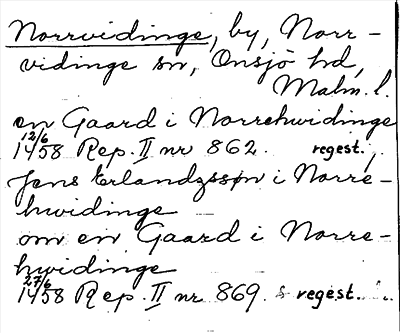 Norrvidinge, by, Norr-
vidinge sn, Onsjö hd,
Malm. l.
en Gaard i Norrehwidinge
12/6
1458 Rep. II nr 862. regest.
Jens Erlandzssøn i Norre-
hwidinge
om en Gaard i Norre-
hwidinge
27/6
1458 Rep. II nr 869. s regest.